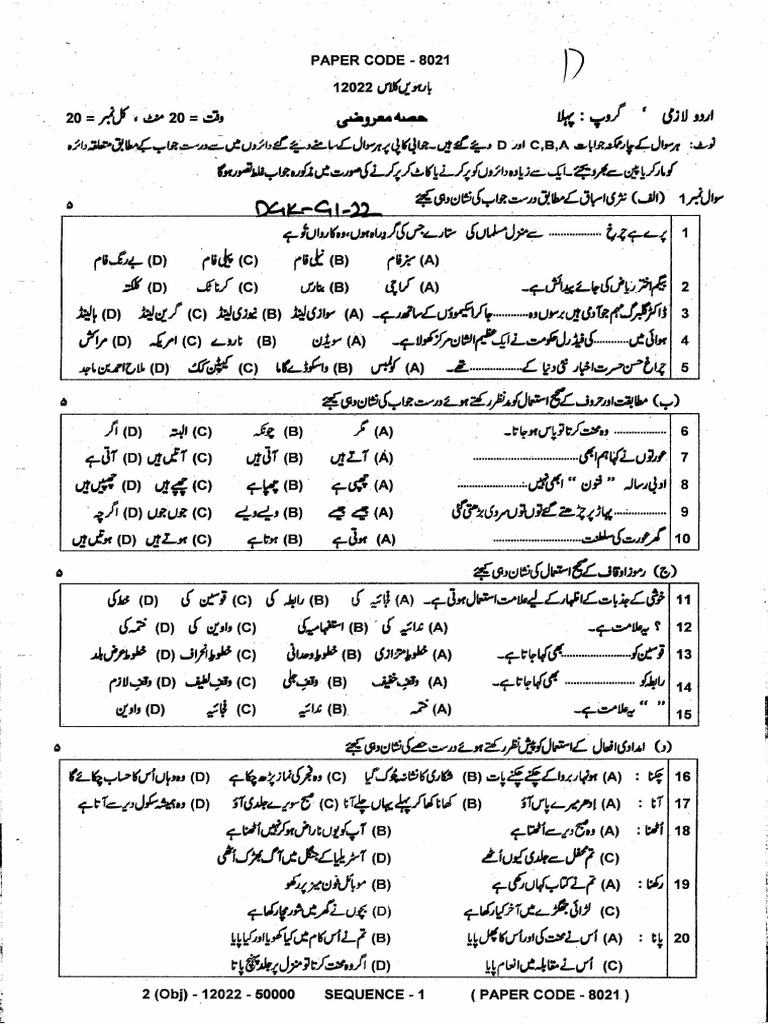 PAPER CODE - 8021
D
بارہویں کلاس 12022
اردو لازمی ، گروپ : پہلا حصہ معروضی وقت = 20 منٹ ، کل نمبر = 20
نوٹ: ہر سوال کے چار ممکنہ جوابات C,B,A اور D دیئے گئے ہیں۔ جوابی کاپی پر ہر سوال کے سامنے دیئے گئے دائروں میں سے درست جواب کے مطابق متعلقہ دائرہ
کو مارکر یا پین سے بھر دیجئے۔ ایک سے زیادہ دائروں کو پر کرنے یا کاٹ کر پر کرنے کی صورت میں مذکورہ جواب غلط تصور ہوگا
DGK-G1-22
سوال نمبر 1 (الف) نثری اسباق کے مطابق درست جواب کی نشان دہی کیجئے ۵
1 پرے ہے چرخِ .................. سے منزل مسلماں کی ستارے جس کی گردِ راہ ہوں، وہ کارواں تُو ہے
(A) سبز فام (B) نیلی فام (C) پیلی فام (D) بے رنگ فام
2 بیگم اختر ریاض کی جائے پیدائش ہے۔ (A) کراچی (B) بنارس (C) کرناٹک (D) کلکتہ
3 ڈاکٹر گلبرگ مہم جو آدمی ہیں برسوں وہ ............ جا کر اسکیموؤں کے ساتھ رہے۔ (A) سوازی لینڈ (B) نیوزی لینڈ (C) گرین لینڈ (D) ہالینڈ
4 ہوائی میں .................. کی فیڈرل حکومت نے ایک عظیم الشان مرکز کھولا ہے۔ (A) سویڈن (B) ناروے (C) امریکہ (D) مراکش
5 چراغ حسن حسرت اخبار نئی دنیا کے .................. تھے۔ (A) کولمبس (B) واسکوڈے گاما (C) کیپٹن کک (D) ملاح احمد بن ماجد
(ب) مطابقت اور حروف کے صحیح استعمال کو مدنظر رکھتے ہوئے درست جواب کی نشان دہی کیجئے ۵
6 .................. وہ محنت کرتا تو پاس ہو جاتا۔ (A) مگر (B) چونکہ (C) البتہ (D) اگر
7 عورتوں نے کہا ہم ابھی .................. (A) آتے ہیں (B) آتی ہیں (C) آتیں ہیں (D) آتی ہے
8 ادبی رسالہ " فنون " ابھی نہیں .................. (A) چھپی ہے (B) چھپا ہے (C) چھپے ہیں (D) چھپیں ہیں
9 .................. پہاڑ پر چڑھتے گئے توں توں سردی بڑھتی گئی (A) جیسے جیسے (B) ویسے ویسے (C) جوں جوں (D) اگرچہ
10 گھر عورت کی سلطنت .................. (A) ہوتی ہے (B) ہوتا ہے (C) ہوتے ہیں (D) ہوتیں ہیں
(ج) رموزِ اوقاف کے صحیح استعمال کی نشان دہی کیجئے ۵
11 خوشی کے جذبات کے اظہار کے لیے علامت استعمال ہوتی ہے۔ (A) فجائیہ کی (B) رابطہ کی (C) قوسین کی (D) خط کی
12 ؟ یہ علامت ہے۔ (A) ندائیہ کی (B) استفہامیہ کی (C) واوین کی (D) ختمہ کی
13 قوسین کو .................. بھی کہا جاتا ہے۔ (A) خطوطِ متوازی (B) خطوطِ وحدانی (C) خطوطِ انحراف (D) خطوطِ عرض بلد
14 رابطہ کو .................. بھی کہا جاتا ہے۔ (A) وقفِ خفیف (B) وقفِ جلی (C) وقفِ لطیف (D) وقفِ لازم
15 " " یہ علامت ہے۔ (A) ختمہ (B) ندائیہ (C) فجائیہ (D) واوین
(د) امدادی افعال کے استعمال کو پیش نظر رکھتے ہوئے درست حصے کی نشان دہی کیجئے ۵
16 چکنا : (A) ہونہار بروا کے چکنے چکنے پات (B) شکاری کا نشانہ چوک گیا (C) وہ فجر کی نماز پڑھ چکا ہے (D) وہ وہاں اُس کا حساب چکائے گا
17 آنا : (A) اِدھر میرے پاس آؤ (B) کھانا کھا کر پہلے یہاں چلے آنا (C) صبح سویرے جلدی آؤ (D) وہ ہمیشہ سکول دیر سے آتا ہے
18 اُٹھنا : (A) وہ صبح دیر سے اُٹھتا ہے (B) آپ کو یوں ناراض ہو کر نہیں اُٹھنا ہے
(C) تم محفل سے جلدی کیوں اُٹھے (D) آسٹریلیا کے جنگل میں آگ بھڑک اُٹھی
19 رکھنا : (A) تم نے کتاب کہاں رکھی ہے (B) موبائل فون میز پر رکھو
(C) لڑائی جھگڑے میں آخر کیا رکھا ہے (D) بچوں نے گھر میں شور مچا رکھا ہے
20 پانا : (A) اُس نے محنت کی اور اُس کا پھل پایا (B) تم نے اُس کام میں کیا کھویا اور کیا پایا
(C) اُس نے مقابلہ میں انعام پایا (D) اگر وہ محنت کرتا تو منزل پر جلد پہنچ پاتا
2 (Obj) - 12022 - 50000 SEQUENCE - 1 ( PAPER CODE - 8021 )